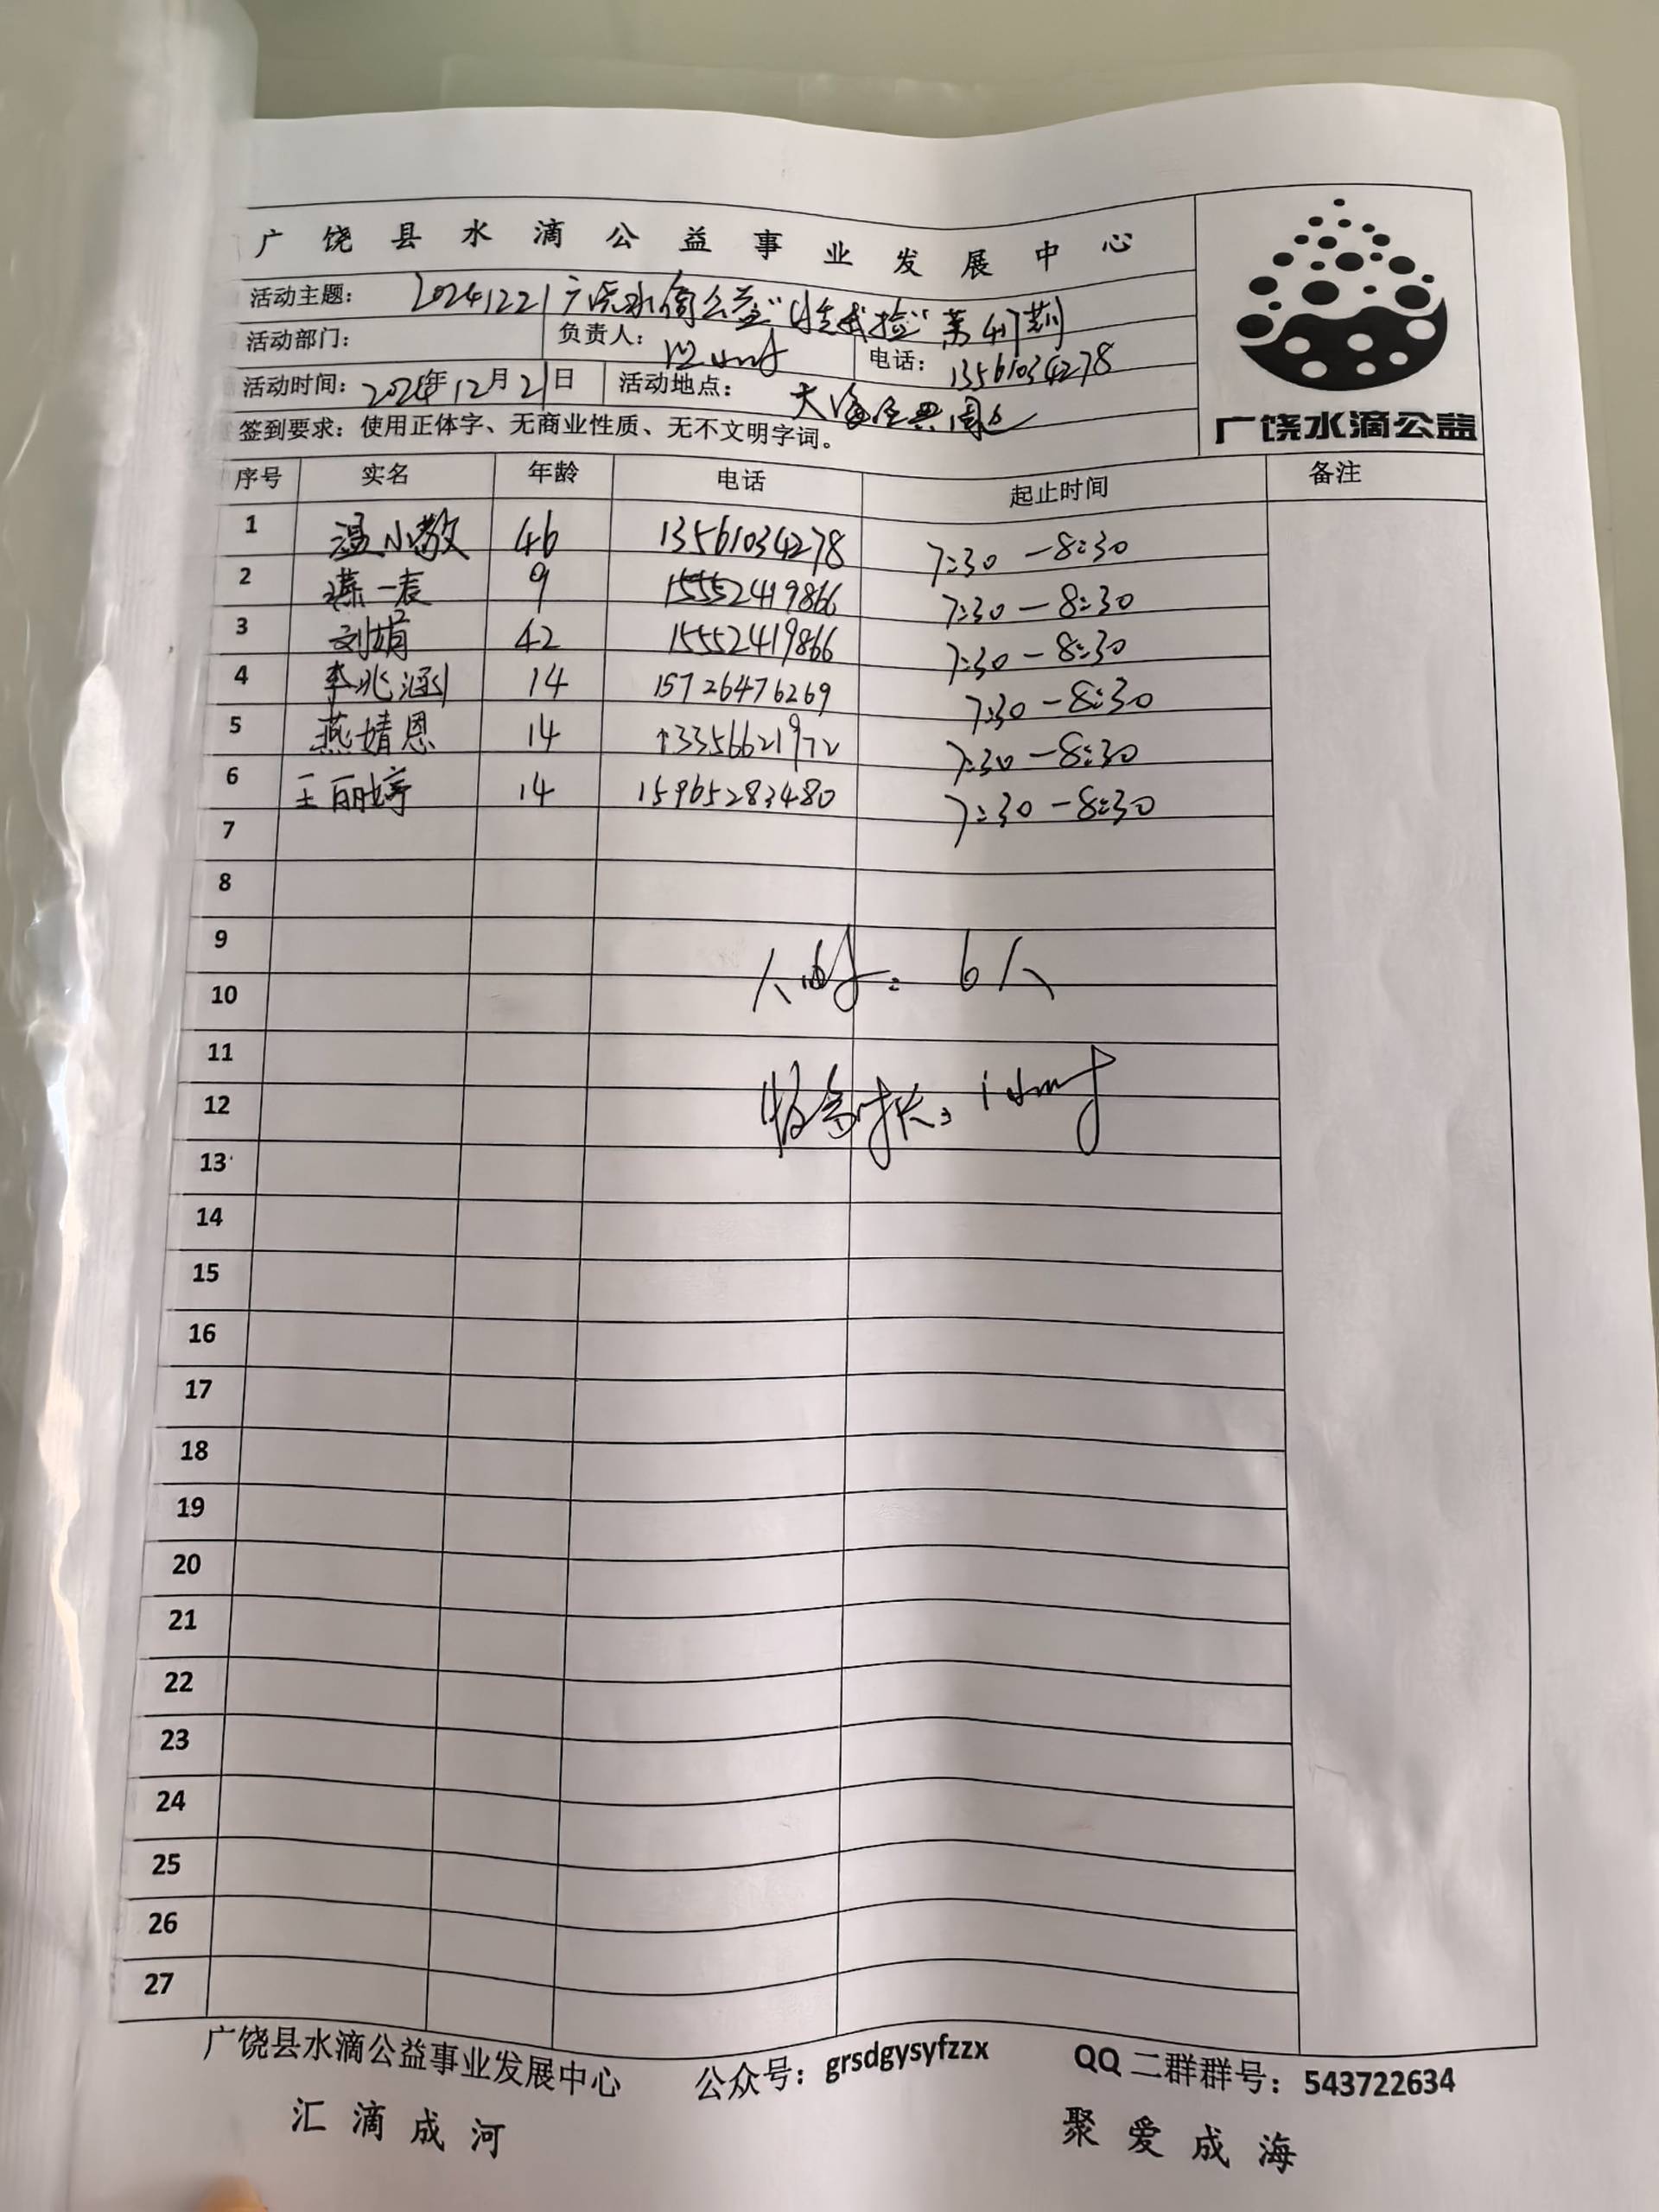 广饶县水滴公益事业发展中心
活动主题：20241221广饶水滴公益"捡"第417期
活动部门： 负责人： 电话：13561034278
活动时间：2024年12月21日 活动地点：大海经典周边
签到要求：使用正体字、无商业性质、无不文明字词。
广饶水滴公益
序号 实名 年龄 电话 起止时间 备注
1 温小教 46 13561034278 7:30-8:30
2 燕一 9 15552419866 7:30-8:30
3 刘娟 42 15552419866 7:30-8:30
4 李兆涵 14 15726476269 7:30-8:30
5 燕婧恩 14 13356621972 7:30-8:30
6 王丽婷 14 15965283480 7:30-8:30
7
8
9
人数：6人
10
11
12
服务时长：1小时
13
14
15
16
17
18
19
20
21
22
23
24
25
26
27
广饶县水滴公益事业发展中心 公众号：grsdgysyfzzx QQ二群群号：543722634
汇滴成河 聚爱成海